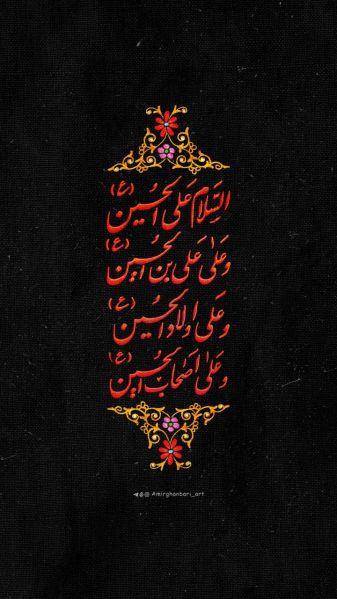 السَّلامُ عَلَی الحُسین (ع)
وَعَلیٰ عَلی بن الحُسین (ع)
وَعَلی اولادِ الحُسین (ع)
وَعَلیٰ اَصحاب الحُسین (ع)
Amirghanbari_art